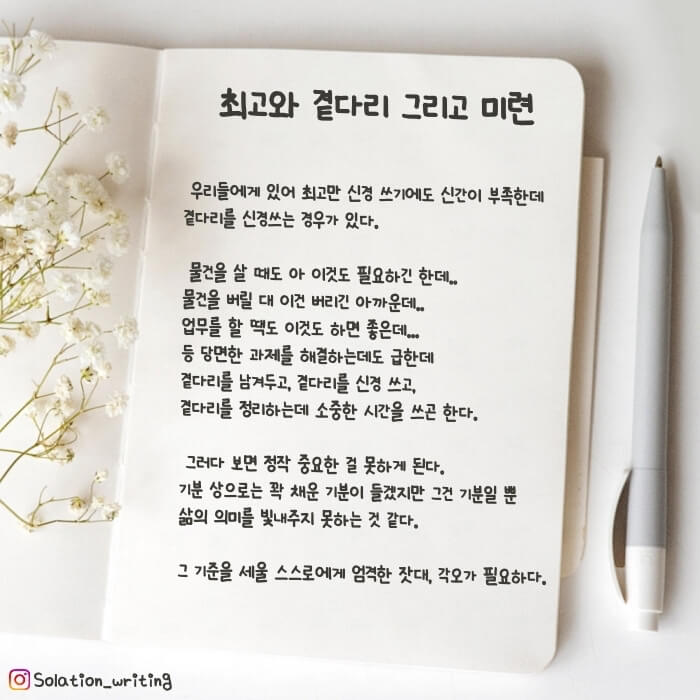 최고와 곁다리 그리고 미련
우리들에게 있어 최고만 신경 쓰기에도 신간이 부족한데
곁다리를 신경쓰는 경우가 있다.
물건을 살 때도 아 이것도 필요하긴 한데..
물건을 버릴 대 이건 버리긴 아까운데..
업무를 할 땍도 이것도 하면 좋은데...
등 당면한 과제를 해결하는데도 급한데
곁다리를 남겨두고, 곁다리를 신경 쓰고,
곁다리를 정리하는데 소중한 시간을 쓰곤 한다.
그러다 보면 정작 중요한 걸 못하게 된다.
기분 상으로는 꽉 채운 기분이 들겠지만 그건 기분일 뿐
삶의 의미를 빛내주지 못하는 것 같다.
그 기준을 세울 스스로에게 엄격한 잣대, 각오가 필요하다.
Solation_writing